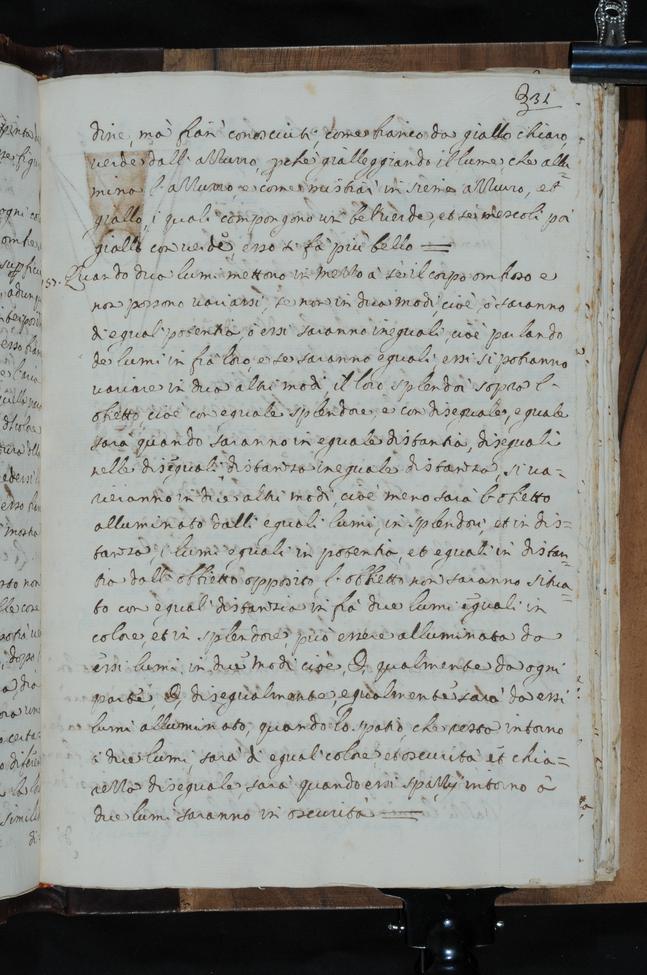 331
dire, mà fian conosciuti, come fianco da giallo chiaro,
verde dall' azzurro, perche gialleggiando il lume che allu=
mina l'azzurro, e come mistiai insieme azzurro, et
giallo, i quali compongono un bel verde, et se mescoli poi
giallo con verde, esso si fà più bello
157. Quando dua lumi mettono in mezzo à sè il corpo ombroso e
non possono variarsi, se non in dua modi cioè, ò saranno
di egual potentia, ò essi saranno inequali, cioè parlando
de lumi in frà loro, e se saranno equali, essi si potranno
variare in dua altri modi il loro splendor sopra l'
obietto, cioè con equale splendore, e con disequale, equale
sarà quando saranno in equale distantia, disequali
nelle disequali distanza inequale distanza, si va=
rieranno in due altri modi, cioè meno sarà l'obietto
alluminato dalli equali lumi, in splendor, et in dis=
tanza, i lumi equali in potentia, et equali in distan=
tia dall' obbietto opposito, l'obbietto non saranno situa=
to con equal distanzia in frà due lumi equali in
colore, et in splendore, può essere alluminato da
essi lumi, in due modi cioè, ò, qualmente da ogni
parte, ò, disequalmente, equalmente sarà da essi
lumi alluminato, quando lo spatio, che resta intorno
i due lumi, sarà di equal colore et oscurità et chia=
rezza disequale sarà quando essi spazzij intorno à
due lumi saranno in oscurità